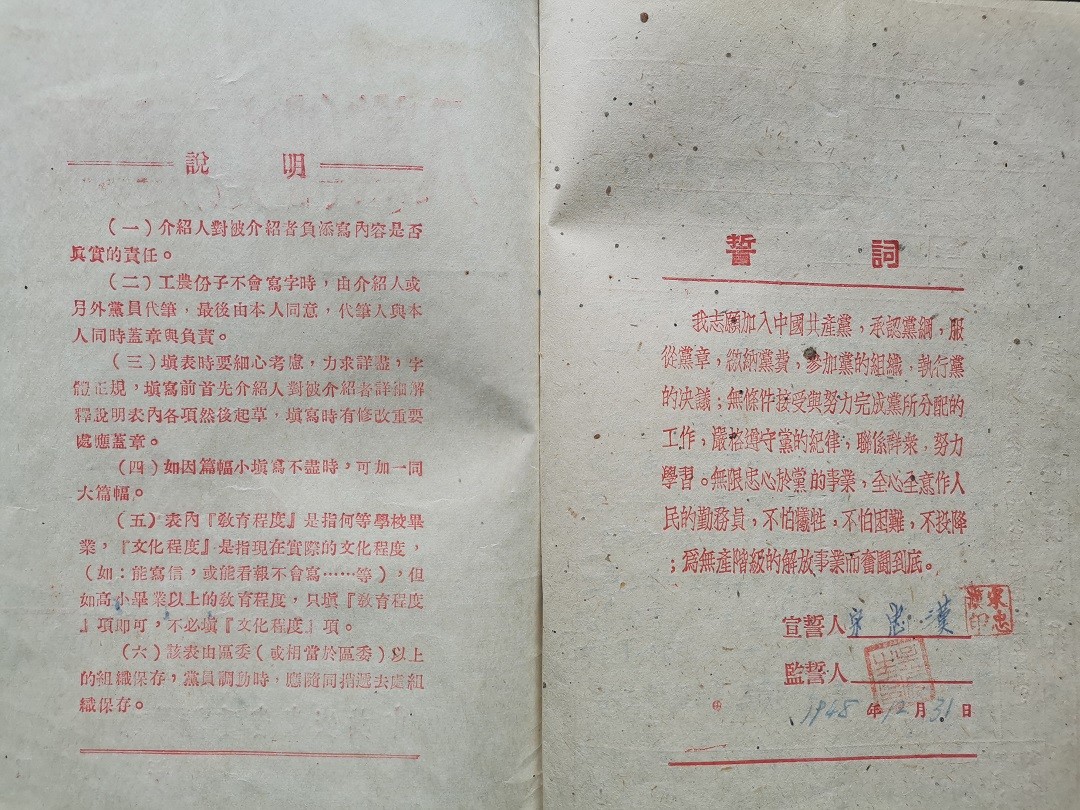 說 明
(一)介紹人對被介紹者負添寫內容是否
眞實的責任。
(二)工農份子不會寫字時,由介紹人或
另外黨員代筆,最後由本人同意,代筆人與本
人同時蓋章與負責。
(三)填表時要細心考慮,力求詳盡,字
體正規,填寫前首先介紹人對被介紹者詳細解
釋說明表內各項然後起草,填寫時有修改重要
處應蓋章。
(四)如因篇幅小填寫不盡時,可加一同
大篇幅。
(五)表內『敎育程度』是指何等學校畢
業,『文化程度』是指現在實際的文化程度,
(如:能寫信,或能看報不會寫……等),但
如高小畢業以上的敎育程度,只填『敎育程度
』項即可,不必填『文化程度』項。
(六)該表由區委(或相當於區委)以上
的組織保存,黨員調動時,應隨同指過去處組
織保存。
誓 詞
我志願加入中國共產黨,承認黨綱,服
從黨章,繳納黨費,參加黨的組織,執行黨
的決議;無條件接受與努力完成黨所分配的
工作,嚴格遵守黨的紀律,聯係群衆,努力
學習。無限忠心於黨的事業,全心全意作人
民的勤務員,不怕犧牲,不怕困難,不投降
;爲無產階級的解放事業而奮鬪到底。
宣誓人 宋忠漢
宋忠漢印
監誓人
1948年12月31日